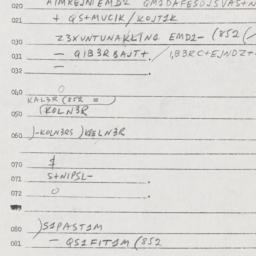 020 AIMKEJNIEMDI GM1DAFESOJSVAS+N
021 + QS+MUCIK/KOJT1K
030 Z3XUNTUNAKKING EMD1- (852
031 — QIB3R3AJT+. / 1,B3RC+EJNDZ+
032 —
040 O
KAL3R (852 = )
050 (KOLN3R
060 )-KOLN3RS )KELN3R
070 $
071 S+NIPSL-
072 O
080 )S1PAST1M
081 — QS1FIT1M (852